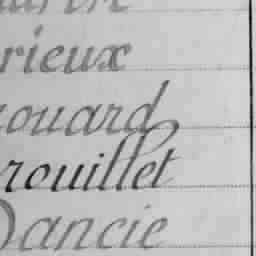 rieux
ouard
rouillet
Dancie